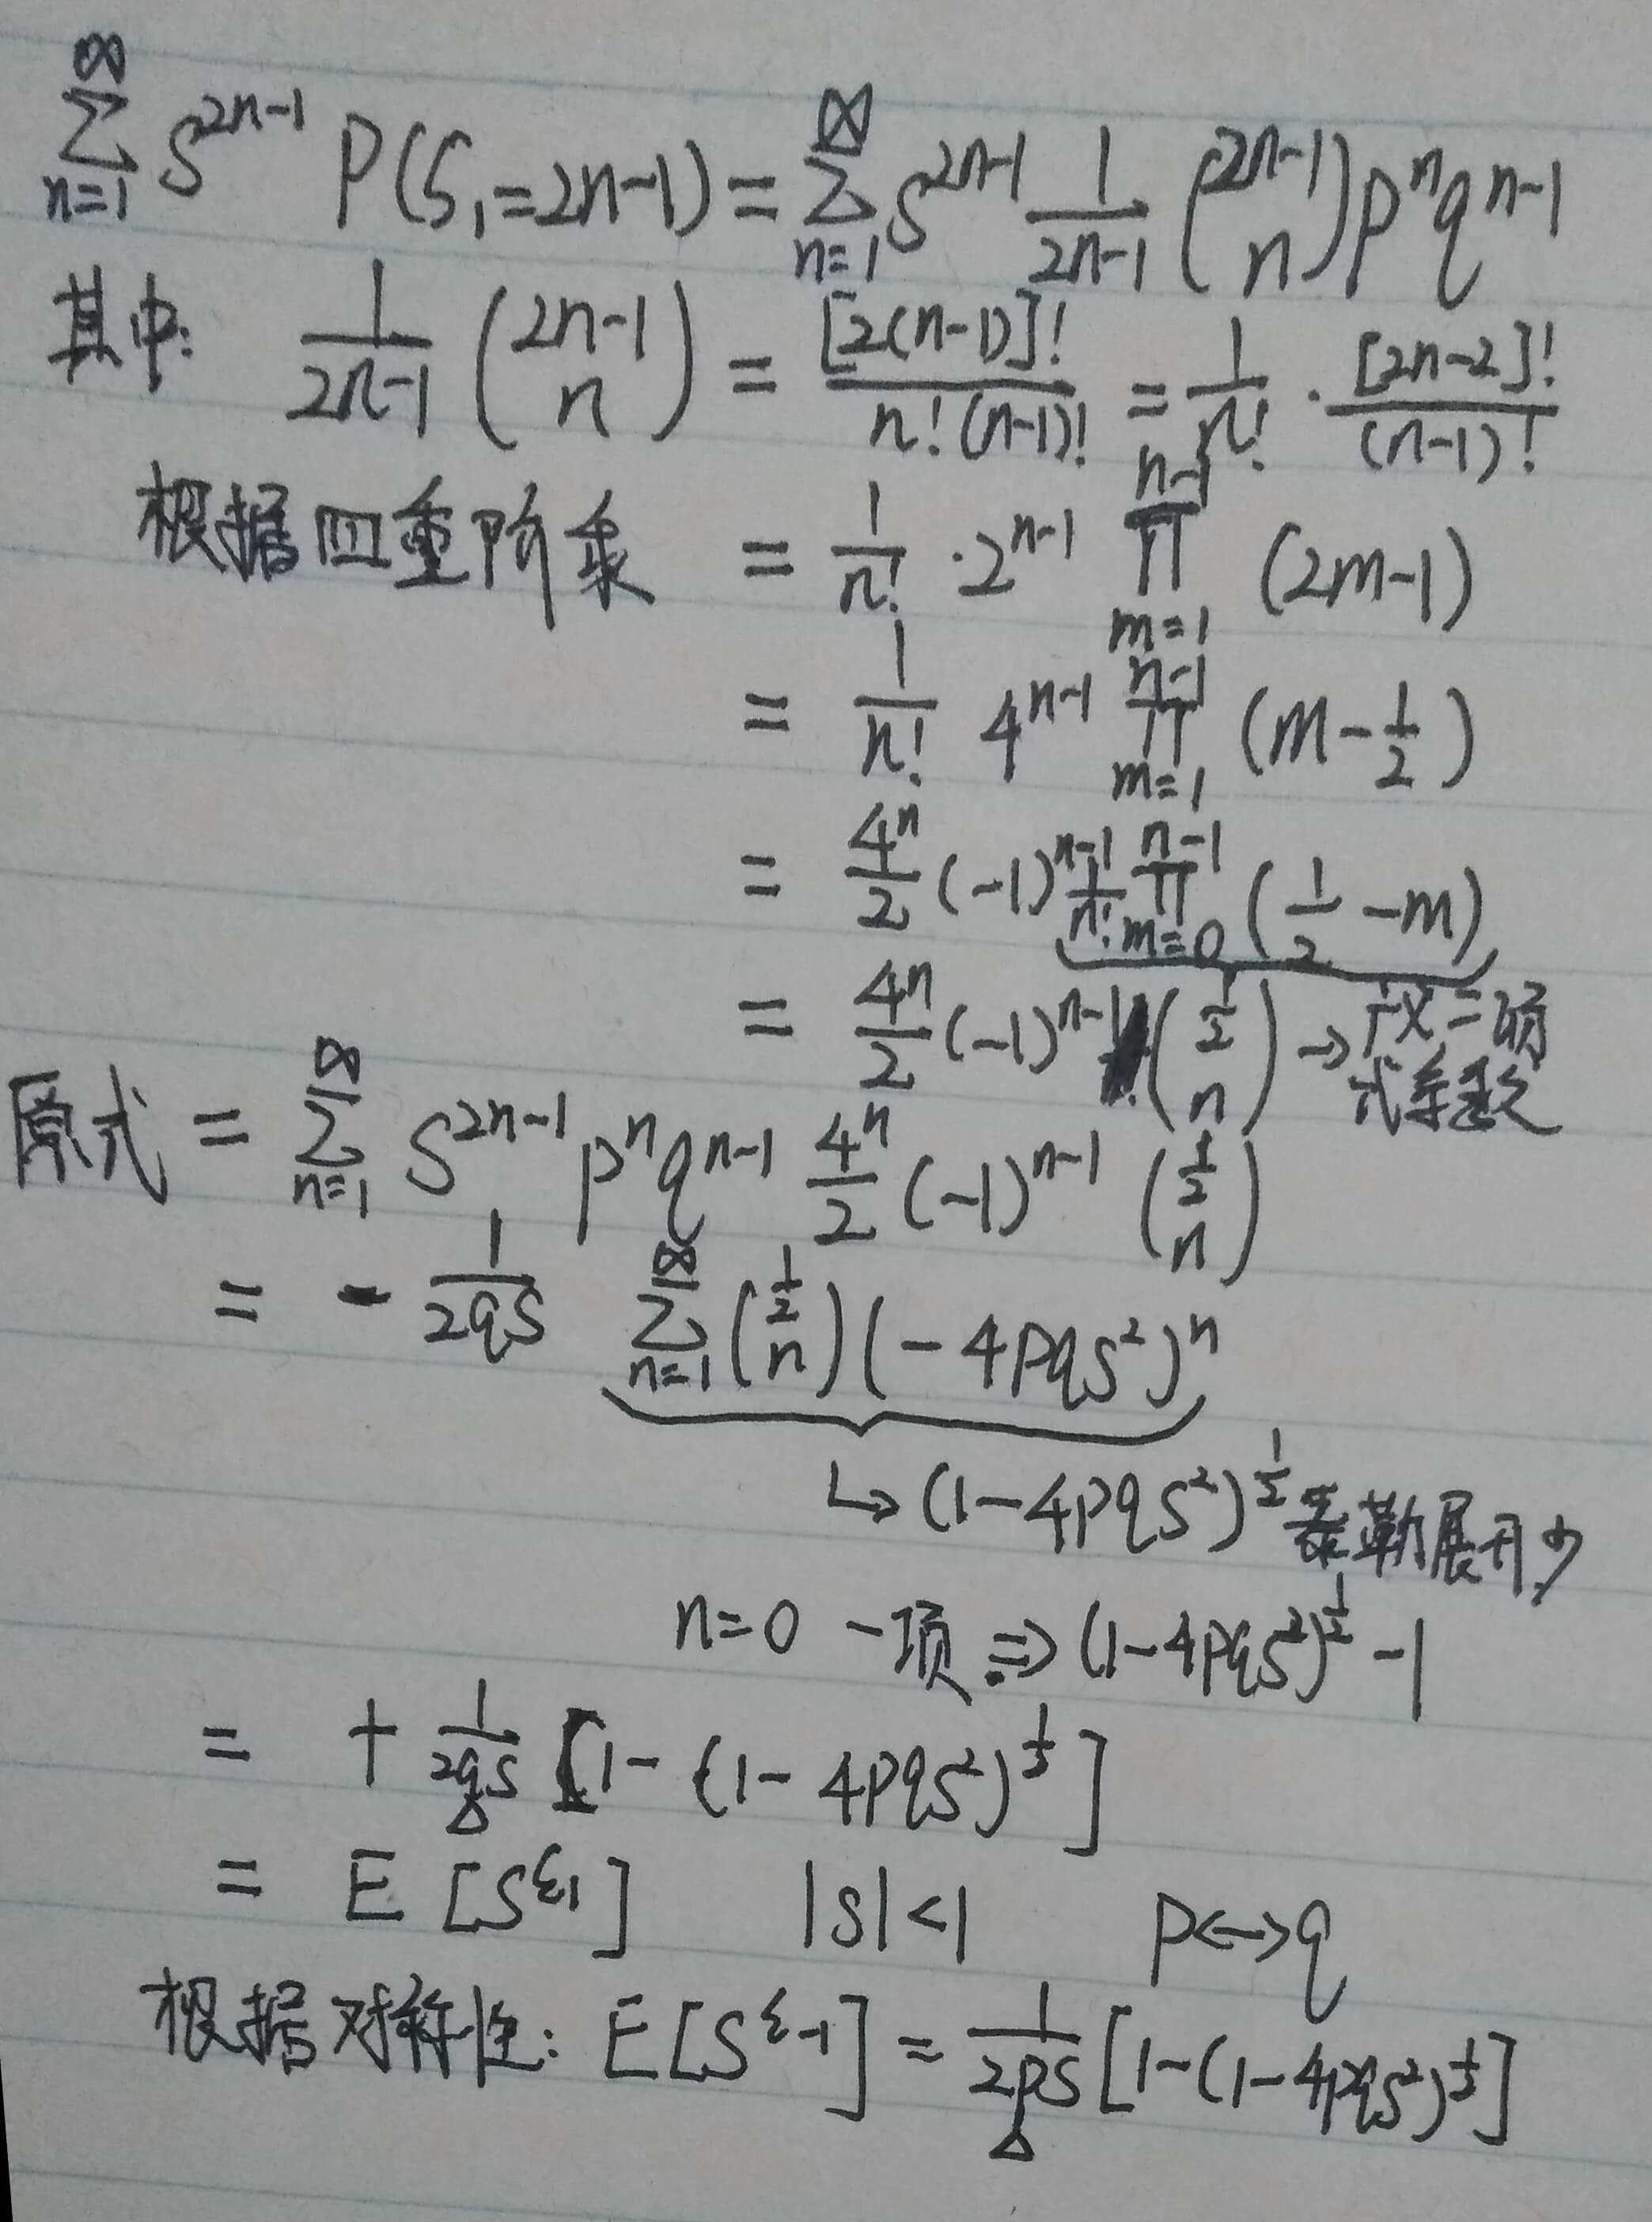 ∑_{n=1}^{∞} S^{2n-1} P(ξ₁=2n-1) = ∑_{n=1}^{∞} S^{2n-1} \frac{1}{2n-1} \binom{2n-1}{n} p^n q^{n-1}
其中: \frac{1}{2n-1} \binom{2n-1}{n} = \frac{[2(n-1)]!}{n!(n-1)!} = \frac{1}{n!} · \frac{[2n-2]!}{(n-1)!}
根据四重阶乘 = \frac{1}{n!} · 2^{n-1} ∏_{m=1}^{n-1} (2m-1)
= \frac{1}{n!} 4^{n-1} ∏_{m=1}^{n-1} (m-\frac{1}{2})
= \frac{4^n}{2} (-1)^{n-1} \frac{1}{n!} ∏_{m=0}^{n-1} (\frac{1}{2}-m)
= \frac{4^n}{2} (-1)^{n-1} \binom{\frac{1}{2}}{n} → 广义二项
式系数
原式 = ∑_{n=1}^{∞} S^{2n-1} p^n q^{n-1} \frac{4^n}{2} (-1)^{n-1} \binom{\frac{1}{2}}{n}
= - \frac{1}{2qs} ∑_{n=1}^{∞} \binom{\frac{1}{2}}{n} (-4pqs²)^n
↳ (1-4pqs²)^{\frac{1}{2}} 泰勒展开少
n=0 一项 ⇒ (1-4pqs²)^{\frac{1}{2}} -1
= + \frac{1}{2qs} [1-(1-4pqs²)^{\frac{1}{2}}]
= E[S^{ξ₁}] |s|<1 p↔q
根据对称性: E[S^{ξ₋₁}] = \frac{1}{2ps} [1-(1-4pqs²)^{\frac{1}{2}}]